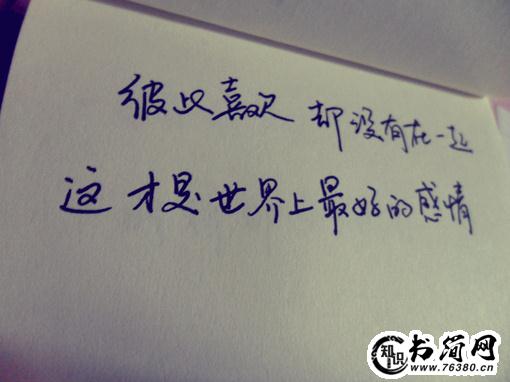 彼此喜欢 却没有在一起
这才是世界上最好的感情
知识 书简网
www.76380.cn